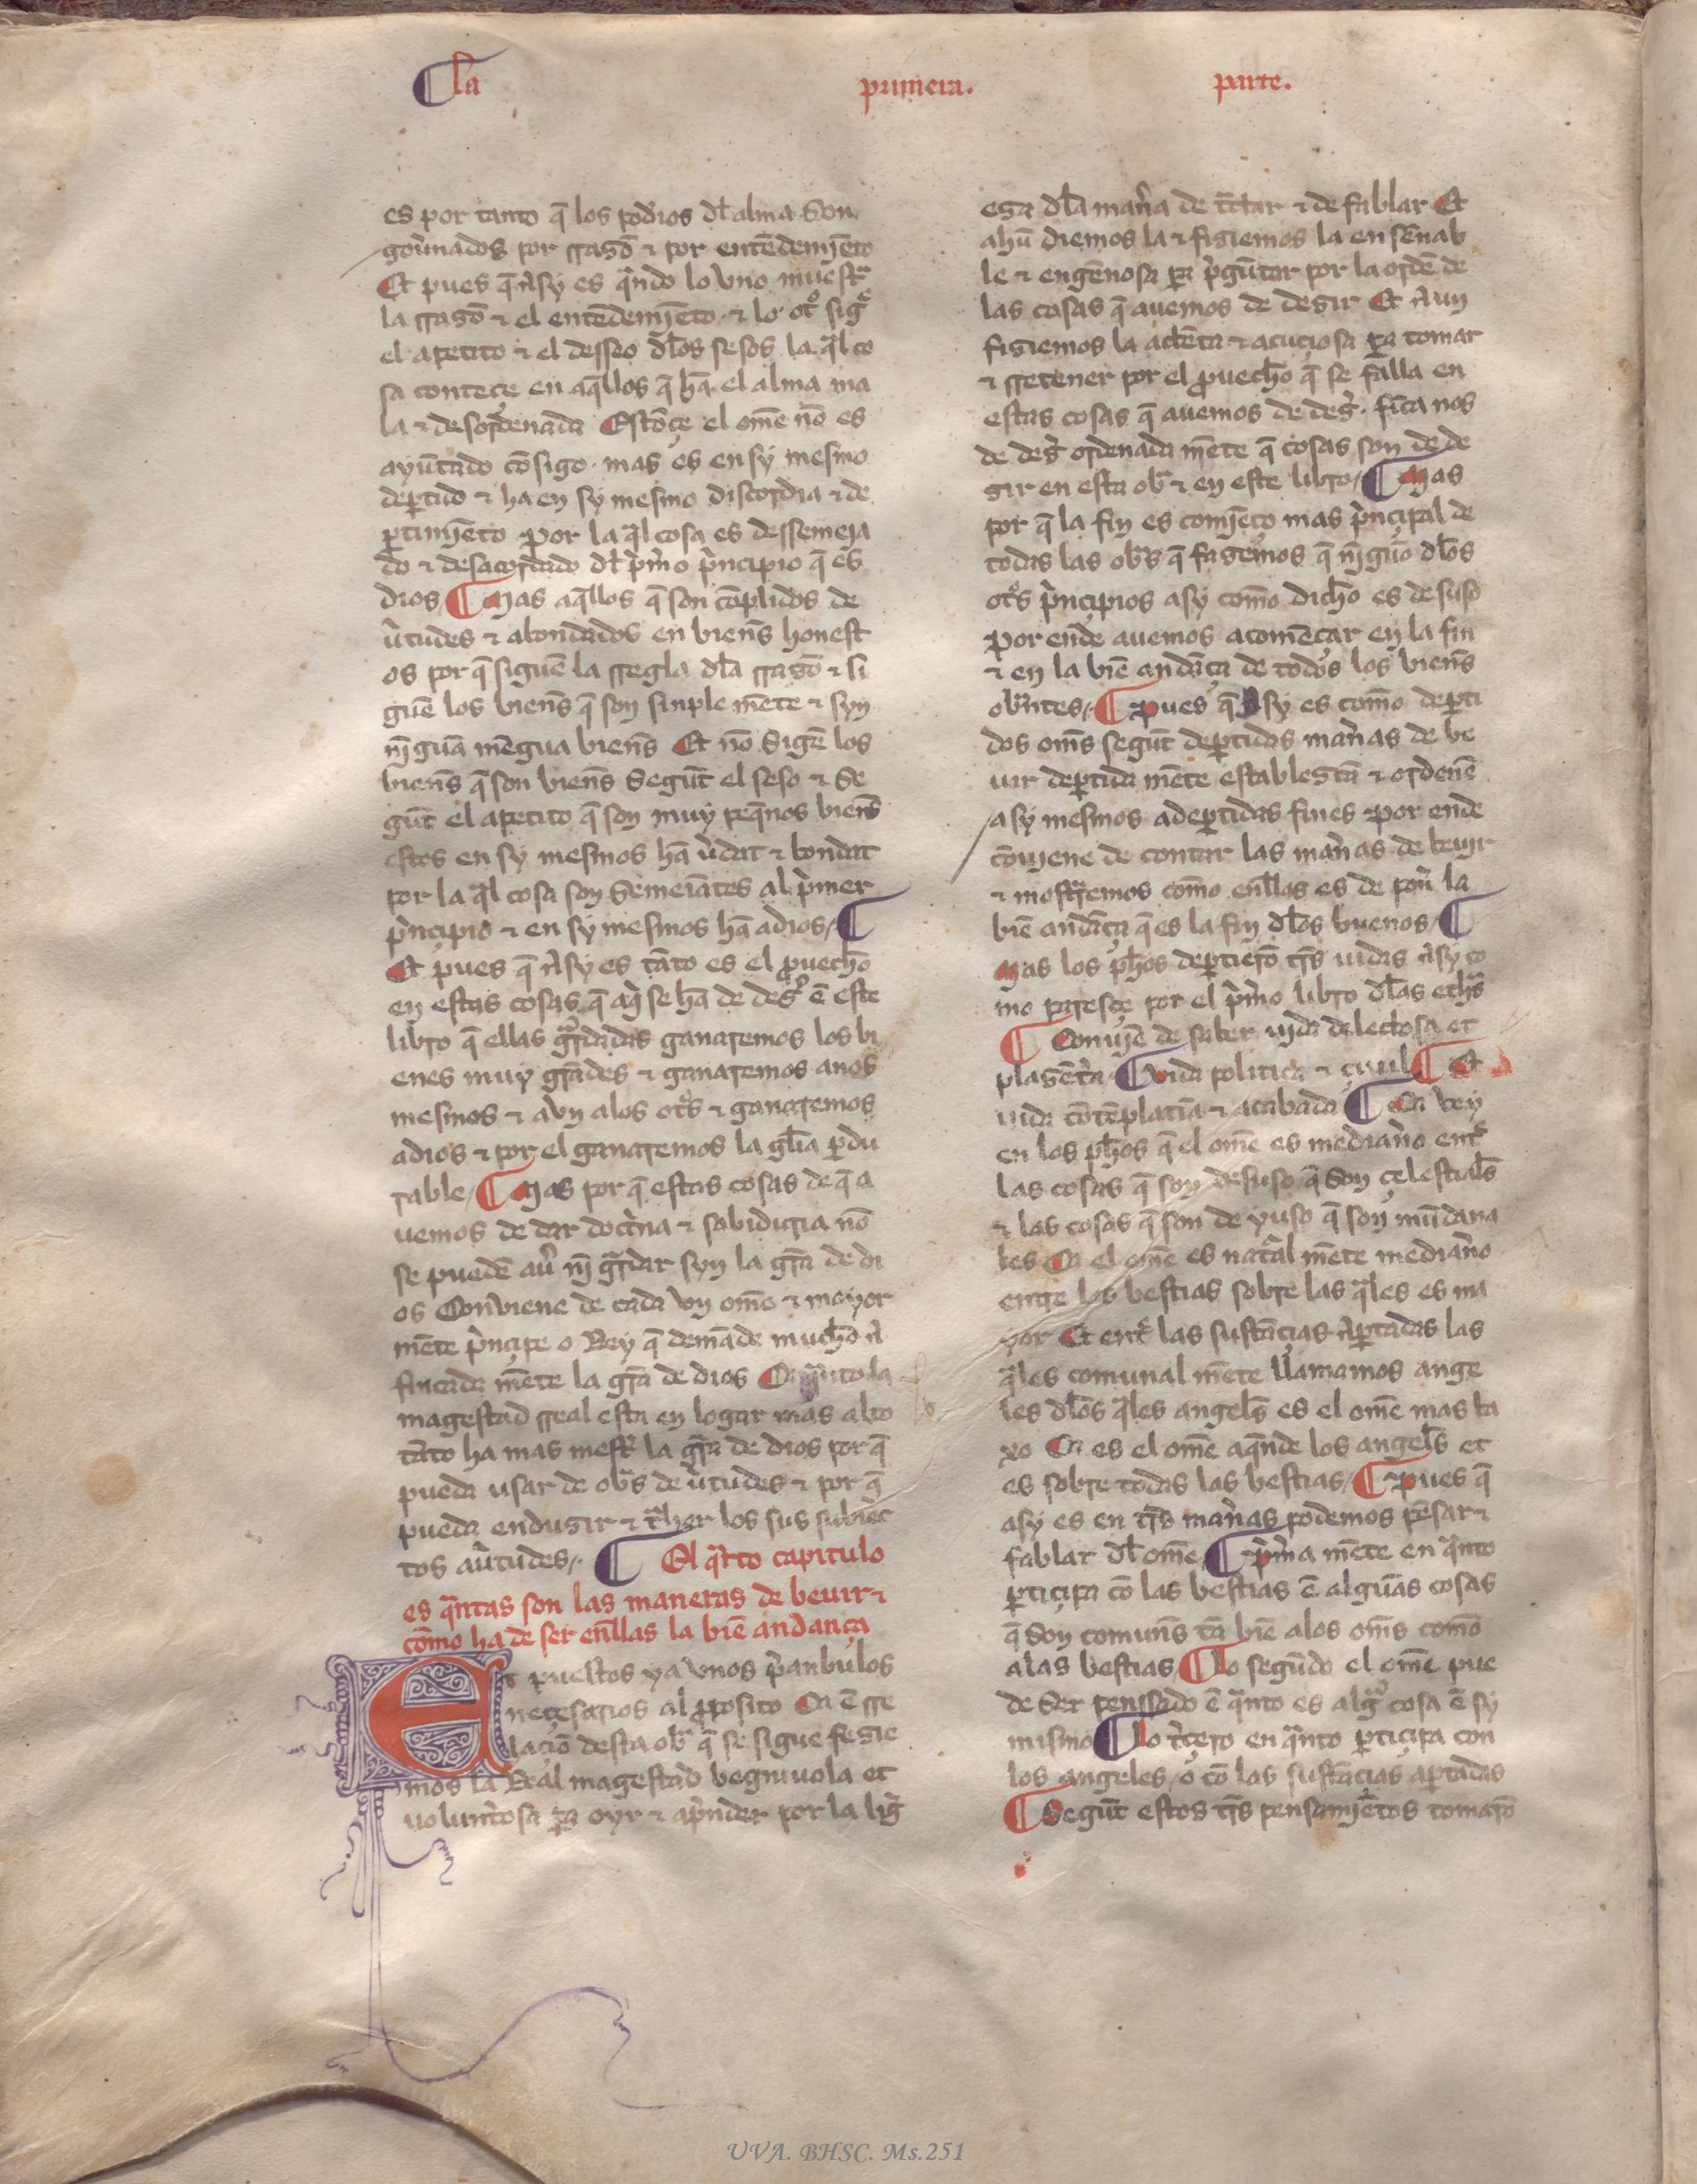 ¶ la primera. parte.
es por tanto q̄ los podr̃ios dl̃ alma son
gou̾nados por rrasõ ⁊ por entẽdemj̃eto
Et pues q̄ asy es qͣndo lo vno muestͣ
la rrasõ ⁊ el entẽdemj̃eto ⁊ lo otͦ sigͤ
el apetito ⁊ el desseo dl̃os sesos la qͣl co
sa conteçe en aq̃llos q̄ hã el alma ma
la ⁊ desordenada Estõçe el om̃e nõ es
ayũtado cõsigo. mas es en sy mesmo
dep̱tido ⁊ ha en sy mesmo discordia ⁊ de
p̱timj̃eto por la qͣl cosa es dessemeja
do ⁊ desacordado dl̃ pͥm̃o pͥnçipio q̄ es
dios ¶ Mas aq̃llos q̄ son cõplidos de
ũtudes ⁊ abondados en bien̾s honest
os por q̄ siguẽ la rregla dl̃a rrasõ ⁊ si
guẽ los bien̾s q̄ son sinple mẽte ⁊ syn
nj̃guã mẽgua bien̾s Et nõ sigẽ los
bien̾s q̄ son bien̾s segũt el seso ⁊ se
gũt el apetito q̄ son muy peq̃nos bien̾s
estos en sy mesmos hã ũdat ⁊ bondat
por la qͣl cosa son semeiãtes al pͥmer
pͥnçipio ⁊ en sy mesmos hã a dios ¶
Et pues q̄ asy es tãto es el ꝓuech̃o
en estas cosas q̄ aqͥ se hã de desͥr ẽ este
libro q̄ ellas gͣrdadas ganaremos los bi
enes muy grãdes ⁊ ganaremos a nos
mesmos ⁊ avn a los otͦs ⁊ ganaremos
a dios ⁊ por el ganaremos la gl̃ia p̱du
rable ¶ Mas por q̄ estas cosas de q̄ a
uemos de dar doctͥna ⁊ sabiduria nõ
se puedẽ au̾ nj̃ gͣrdar syn la grã de di
os Conviene de cada vn om̃e ⁊ mayor
mẽte pͥnçipe o Rey q̄ demãde much̃o a
fincada mẽte la grã de dios Ca qͣnto la
magestad rreal esta en logar mas alto
tãto ha mas mest̾ la grã de dios por q̄
pueda usar de obͣs de ũtudes ⁊ por q̄
pueda endusir ⁊ tͣher los sus subiec
tos a ũtudes. ¶ El qͣrto capitulo
es qͣntas son las maneras de beuir ⁊
cõmo ha de ser en̾llas la biẽ andança
Et puestos ya vnos pͥanbulos
neçesarios al ꝓposito Ca ẽ rre
laçiõ desta obͣ q̄ se sigue fesie
mos la Real magestad begniuola et
volunt̾osa p̱a oyr ⁊ apͥnder por la lig̾
esa dl̃a man̾a de tͣctar ⁊ de fablar Et
ahũ diemos la ⁊ fisiemos la ensẽnab
le ⁊ engẽnosa p̱a pͥgũtar por la ordẽ de
las cosas q̄ auemos de desir Et avn
fisiemos la atẽta ⁊ acuçiosa p̱a tomar
⁊ rretener por el ꝓuech̃o q̄ se falla en
estas cosas q̄ auemos de desͥr. finca nos
de desͥr ordenada mẽte q̄ cosas son de de
sir en esta obͣ ⁊ en este libro ¶ Mas
por q̄ la fin es comj̃eço mas pͥnçipal de
todas las obͣs q̄ fasemos q̄ nj̃guõ dl̃os
otͦs pͥnçipios asy com̃o dich̃o es de suso
por ende auemos a comẽçar en la fin
⁊ en la biẽ andãça de todos los bien̾s
obͣntes ¶ pues q̄ asy es com̃o dep̱ti
dos om̃s segũt dep̱tidas man̾as de be
uir dep̱tida mẽte establesçã ⁊ ordenẽ
a sy mesmos a dep̱tidas fines por ende
cõujene de contar las man̾as de beujr
⁊ mostͣremos com̃o en̾llas es de pon̾ la
biẽ andãça q̄ es la fin dl̃os buenos ¶
Mas los ph̃os dep̱tierõ tr̃s uidas asy co
mo paresçe por el pͥm̃o libro dl̃as ethͣs
¶ Conujẽ de saber ujda delectosa et
plasẽt̾a ¶ vida politica ⁊ çiuil ¶ Et
uida cõtẽplatiã ⁊ acabada ¶ Ca vey
en los ph̃os q̄ el om̃e es median̾o entͤ
las cosas q̄ son de suso q̄ son çelestial̃s
⁊ las cosas q̄ son de yuso q̄ son mũdana
les Ca el om̃e es natͣal mẽte median̾o
entre las bestias sobre las qͣles es ma
yor Et entͤ las sustãçias ap̱tadas las
qͣles comunal mẽte llamamos ange
les dl̃os qͣles angel̃s es el om̃e mas ba
xo Ca es el om̃e aq̃nde los angel̃s et
es sobre todas las bestias ¶ pues q̄
asy es en tr̃s man̾as podemos pẽsar ⁊
fablar dl̃ om̃e ¶ pͥm̃a mẽte en qͣnto
p̱tiçipa cõ las bestias ẽ algũas cosas
q̄ son comun̾s tã biẽ a los om̃s com̃o
a las bestias ¶ Lo segũdo el om̃e pue
de ser penssado ẽ qͣnto es algͣ cosa ẽ sy
mismo ¶ Lo t̾çero en qͣnto p̱tiçipa con
los angeles o cõ las sustãçias ap̱tadas
¶ Segũt estos tr̃s pensamj̃etos tomarõ
UVA. BHSC. Ms.251